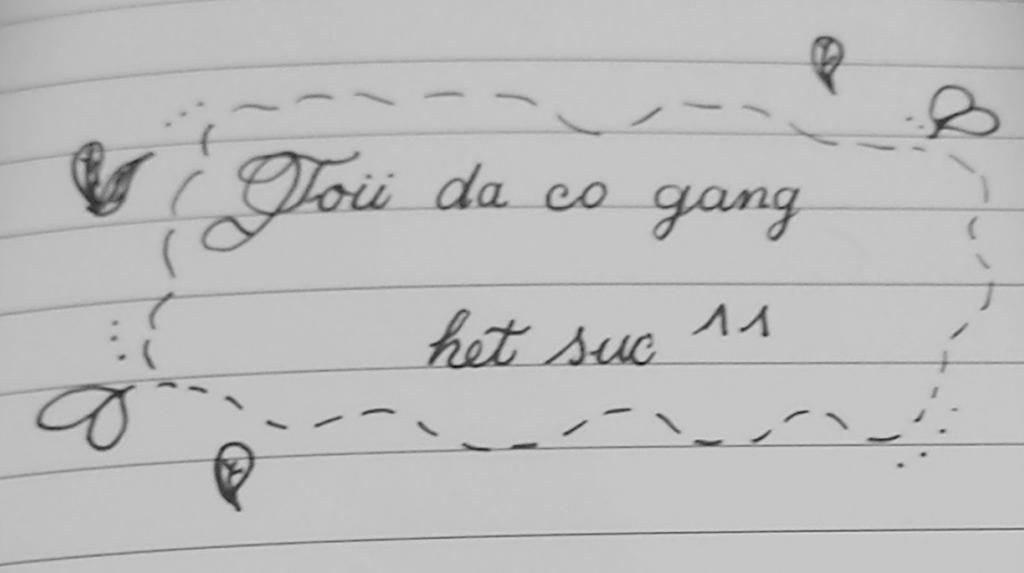 Toii da co gang
het suc ^^